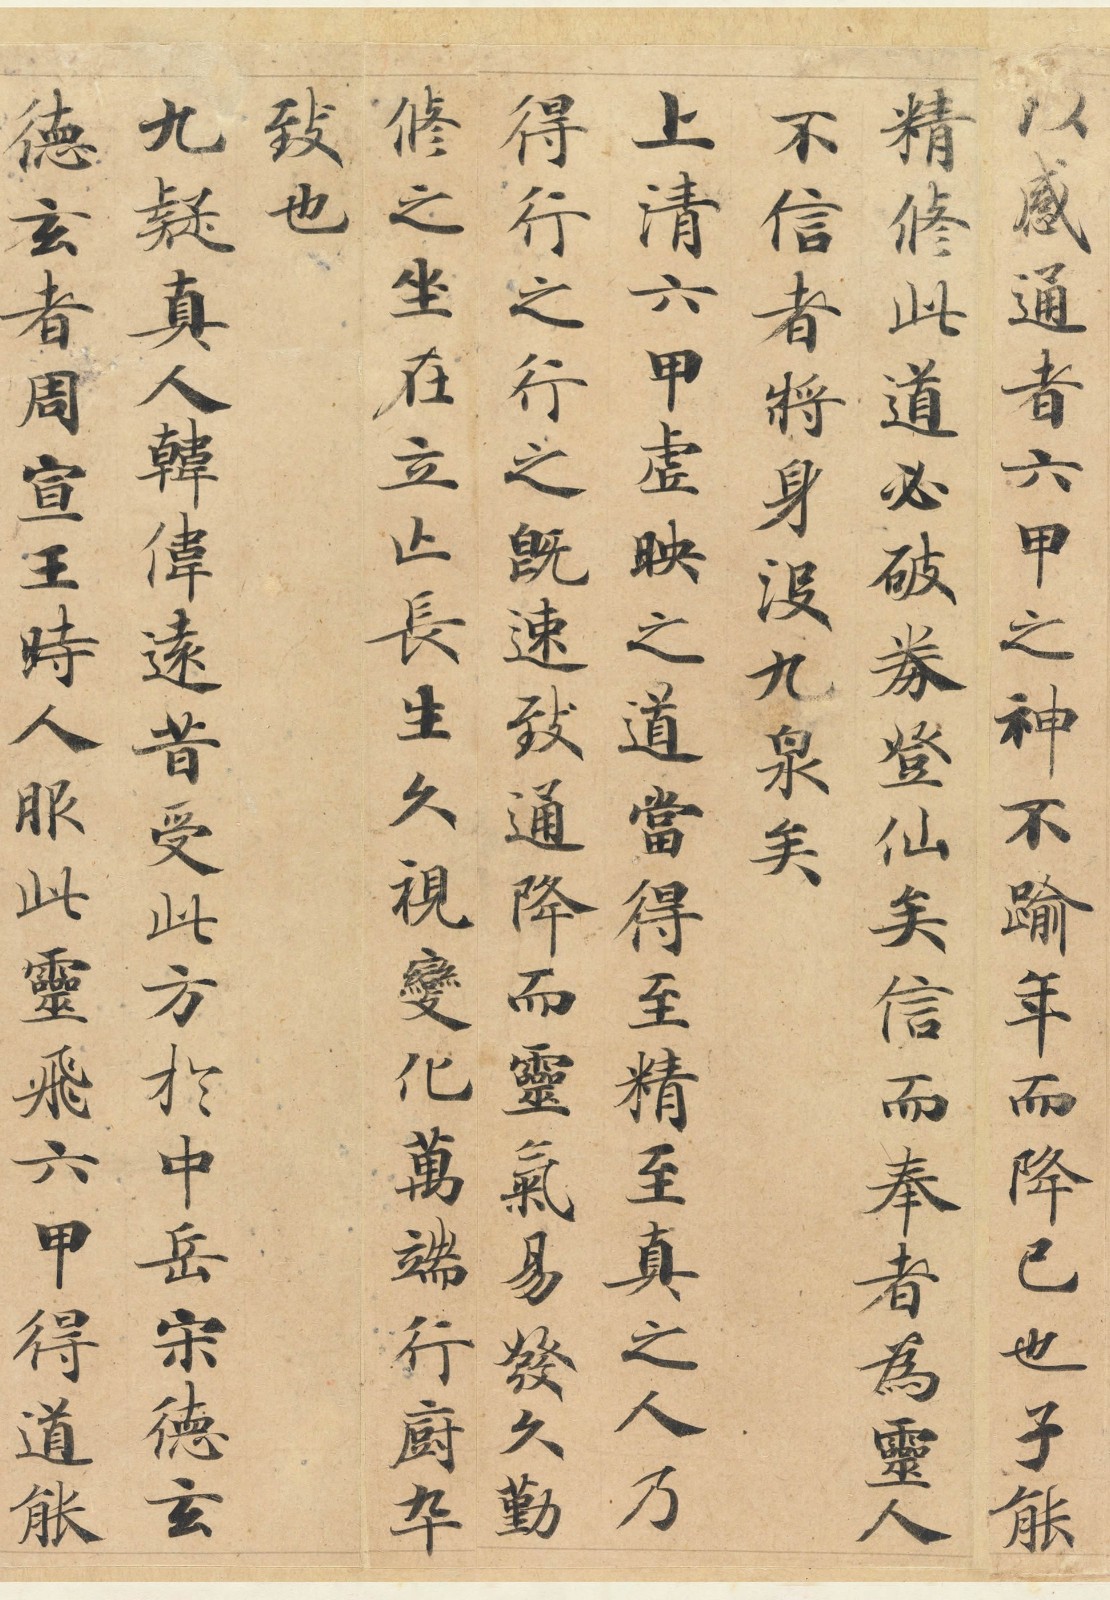 以感通者六甲之神不踰年而降已也子能
精脩此道必破券登仙矣信而奉者為靈人
不信者將身沒九泉矣
上清六甲虛映之道當得至精至真之人乃
得行之行之既速致通降而靈氣易發久勤
脩之坐在立亡長生久視變化萬端行廚卒
致也
九疑真人韓偉遠昔受此方於中岳宋德玄
德玄者周宣王時人服此靈飛六甲得道能